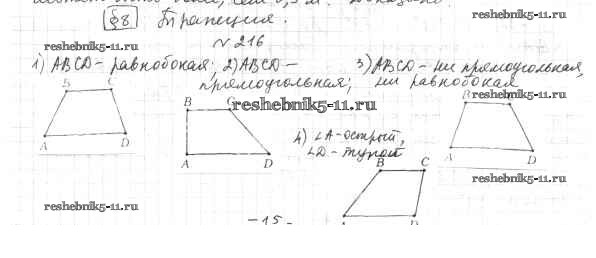 §8 Трапеция.
reshebnik5-11.ru
№ 216
reshebnik5-11.ru
1) ABCD - равнобокая; 2) ABCD - прямоугольная; 3) ABCD - ни прямоугольная, ни равнобокая
reshebnik5-11.ru
B
A D
B C
A D
4) ∠A - острый,
∠D - тупой
B
A D
B C
A D
reshebnik5-11.ru
reshebnik5-11.ru
-15-